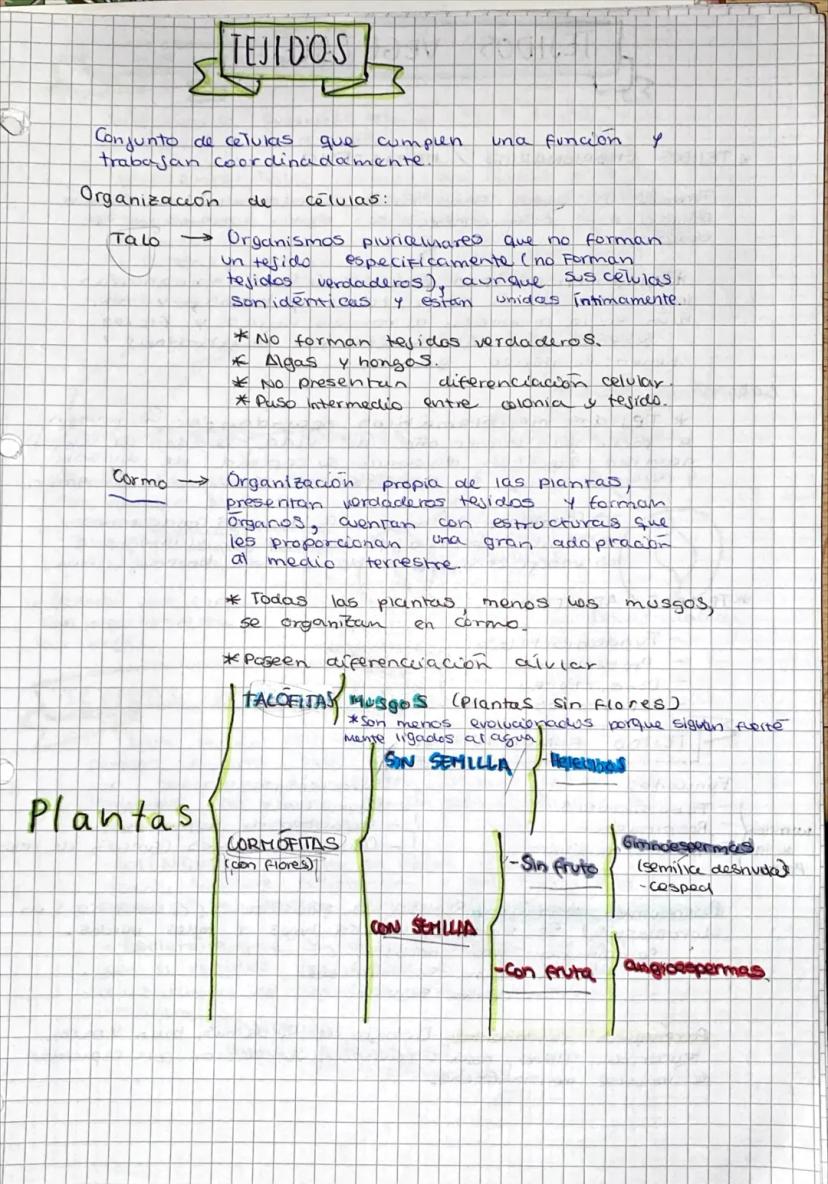 TEJIDOS
Conjunto de células que cumplen una función y
trabajan coordinadamente.
Organización de células:
Talo → Organismos pluricelulares que no forman
un tejido específicamente (no forman
tejidos verdaderos), aunque sus células
son idénticas y están unidas íntimamente.
* No forman tejidos verdaderos.
* Algas y hongos.
* No presentan diferenciación celular.
* Paso intermedio entre colonia y tejido.
Cormo → Organización propia de las plantas,
presentan verdaderos tejidos y forman
órganos, cuentan con estructuras que
les proporcionan una gran adaptación
al medio terrestre.
* Todas las plantas, menos los musgos,
se organizan en cormo.
* Poseen diferenciación celular
TALÓFITAS Musgos (Plantas sin flores)
*Son menos evolucionados porque siguen fuerte
mente ligados al agua
SIN SEMILLA - Helechos
Plantas
CORMÓFITAS
(con flores)
-Sin fruto
Gimnoespermas
(semilla desnuda)
-cesped
CON SEMILLA
-Con fruta
angioespermas